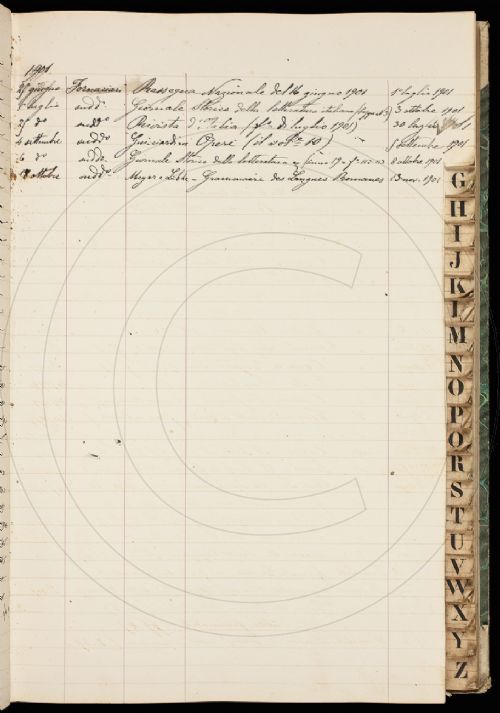 1901
27 giugno Fornaciari Rassegna Nazionale del 16 giugno 1901 1º luglio 1901
luglio sudd. Giornale Storico della letteratura italiana 3 ottobre 1901
25 dº suddº Rivista d'Italia (fº di luglio 1901) 30 luglio
4 settembre suddº Guicciardini Opere (il volº 10) settembre 1901
6 dº suddº Giornale Storico della letteratura 8 ottobre 1901
ottobre suddº Meyer-Lübke - Grammaire des Langues Romanes 13 nov. 1901
G
H
I
J
K
I
M
N
O
P
O
R
S
T
U
V
W
X
Y
Z